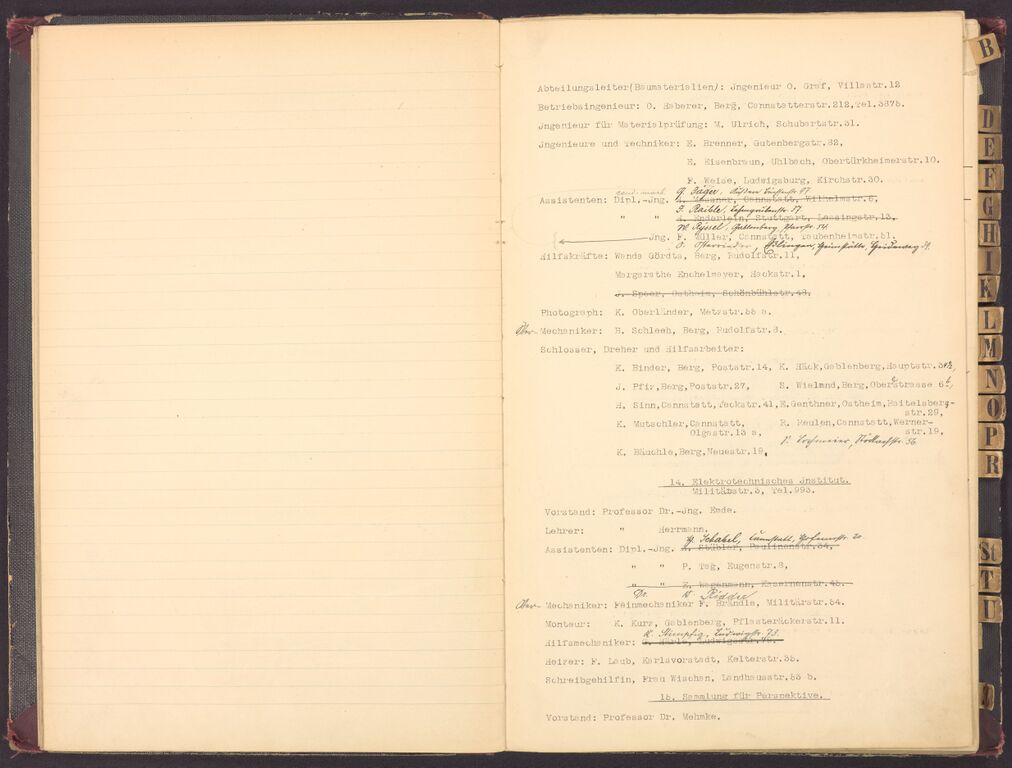 Abteilungsleiter(Baumaterialien): Jngenieur O. Graf, Villastr.12
Betriebsingenieur: O. Haberer, Berg, Cannstatterstr.212, Tel.3875.
Jngenieur für Materialprüfung: M. Ulrich, Schubartstr.31.
Jngenieure und Techniker: E. Brenner, Gutenbergstr.82,
E. Eisenbraun, Uhlbach, Obertürkheimerstr.10.
F. Weise, Ludwigsburg, Kirchstr.30.
cand. mach. G. Jäger,
Assistenten: Dipl.-Jng. Cannstatt, Wilhelmstr.6,
F. Raible,
" " Enderlein, Stuttgart, Lessingstr.13,
Gablenberg,
Jng. F. Müller, Cannstatt, Taubenheimstr.51.
Hilfskräfte: Wanda Gördts, Berg, Rudolfstr.11,
Margarethe Enchelmayer, Hackstr.1,
J. Speer, Ostheim, Schönbühlstr.48,
Photograph: K. Oberländer, Metzstr.55 a.
Ober- Mechaniker: B. Schleeh, Berg, Rudolfstr.8.
Schlosser, Dreher und Hilfsarbeiter:
K. Binder, Berg, Poststr.14, K. Hück, Gablenberg, Hauptstr.
J. Pfiz, Berg, Poststr.27, S. Wieland, Berg, Obere Strasse 6
H. Sinn, Cannstatt, Teckstr.41, E. Genthner, Ostheim, Raitelsberg-
str.29,
K. Mutschler, Cannstatt, R. Reulen, Cannstatt, Werner-
Olgastr.13 a, str.19,
Stöckachstr. 56
K. Bäuchle, Berg, Neuestr.19,
14. Elektrotechnisches Jnstitut.
Militärstr.3, Tel.993.
Vorstand: Professor Dr.-Jng. Emde.
Lehrer: " Herrmann.
Schabel, Cannstatt,
Assistenten: Dipl.-Jng. Stübler, Paulinenstr.34,
" " P. Tag, Eugenstr.8,
" " Z. Wagenmann, Kasernenstr.45.
Dr. W. Ridder
Ober- Mechaniker: Feinmechaniker F. Brändle, Militärstr.54.
Monteur: K. Kurz, Gablenberg, Pflasteräckerstr.11.
K. Stumpfig, Ludwigstr. 73.
Hilfsmechaniker:
Heizer: F. Laub, Karlsvorstadt, Kelterstr.35.
Schreibgehilfin, Frau Wischan, Landhausstr.53 b.
15. Sammlung für Perspektive.
Vorstand: Professor Dr. Mehmke.
B
D
E
F
G
H
I
K
L
M
N
O
P
R
St
T
U